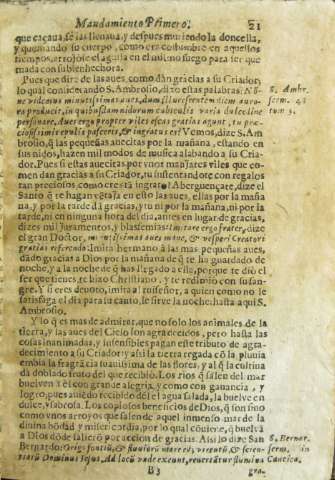 Mandamiento Primero. 21
que caçaua, se las lleuaua, y despues muriendo la donzella,
y quemando su cuerpo, como era costumbre en aquellos
tiempos, arrojose el aguila en el mismo fuego para ser que
mada con su bienhechora.
Pues que dire de las aues, como dàn gracias a su Criador,
lo qual considerando S. Ambrosio, dize estas palabras: 
ne videmus minutissimas aues, dum illucescentem diem auro
ra producit, in quibusdam nidorum cubiculis varia dulcedine
personare, Aues ergo propter viles escas gratias agunt, tu preciosissimis epulis pasceris, & ingratus es? Vemos, dize S. Am
brosio, q̃ las pequeñas auecitas por la mañana, estando en
sus nidos, hazen mil modos de musica alabando a su Cria-
dor. Pues si estas auecitas por vnos manjares viles que co-
men dan gracias a su Criador, tu sustentandote con regalos
tan preciosos, como eres tã ingrato? Aberguençate, dize el
Santo q̃ te hagan vẽtaja en esto las aues, ellas por la maña
na, y por la tarde dà gracias, y tu ni por la mañana, ni por la
tarde, ni en ninguna hora del dia, antes en lugar de gracias,
dizes mil juramentos, y blasfemias: imitare ergo frater, dize
el gran Doctor, minutissimas aues mane, & vesperè Creatori
gratias referendo. Imita hermano a las mas pequeñas aues,
dãdo gracias a Dios por la mañana de q̃ te ha guardado de
noche, y a la noche de q̃ has llegado a ella, porque te diò el
ser que tienes, te hizo Christiano, y te redimiò con su san-
gre. Y si eres deuoto, imita al ruiseñor, a quien como no le
fatigasse el dia para su canto, le sirve la noche hasta aqui S.
Ambrosio.
Y lo q̃ es mas de admirar, que no solo los animales de la
tierra, y las aues del Cielo son agradecidos, pero hasta las
cosas inanimadas, y insensibles pagan este tributo de agra-
decimiento a su Criador: y assi la tierra regada cõ la pluuia
embia la fragrãcia suauissima de las flores, y al q̃ la cultiua
da doblado fruto del que recibiò. Los rios q̃ salen del mar
bueluen a èl con grande alegria, y como con ganancia, y
logro, pues auiẽdo recibido dèl el agua salada, la buelue en
dulce, y sabrosa. Los copiosos beneficios de Dios, q̃ son sino
como vnos arroyos que salen de aquel inmenso mar de la
diuina bõdad, y misericordia, por lo qual cõuiene, q̃ buelvã
a Dios dõde salierõ por accion de gracias. Assi lo dize San
Bernardo:
B 3 gra-
S. Ambr.
serm. 43
tom 3.
S. Bernar.
serm. in
Cantica.